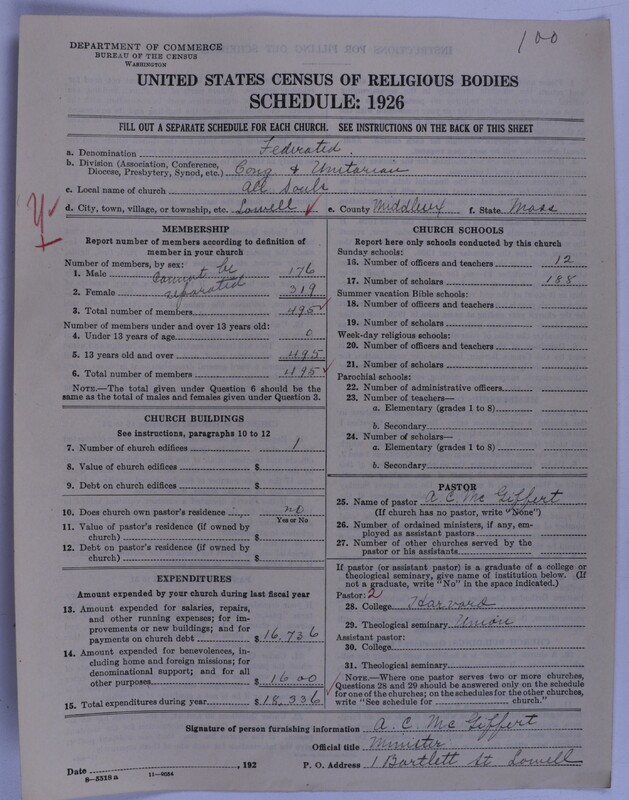 100
DEPARTMENT OF COMMERCE
BUREAU OF THE CENSUS
WASHINGTON
UNITED STATES CENSUS OF RELIGIOUS BODIES
SCHEDULE: 1926
FILL OUT A SEPARATE SCHEDULE FOR EACH CHURCH. SEE INSTRUCTIONS ON THE BACK OF THIS SHEET
a. Denomination Federated
b. Division (Association, Conference, Diocese, Presbytery, Synod, etc.) Cong & Unitarian
c. Local name of church All Souls
d. City, town, village, or township, etc. Lowell e. County Middlesex f. State Mass
MEMBERSHIP
Report number of members according to definition of
member in your church
Number of members, by sex:
Cannot be
separated
1. Male 176
2. Female 319
3. Total number of members 495
Number of members under and over 13 years old:
4. Under 13 years of age 0
5. 13 years old and over 495
6. Total number of members 495
NOTE.—The total given under Question 6 should be
same as the total of males and females given under Question 3.
CHURCH BUILDINGS
See instructions, paragraphs 10 to 12
7. Number of church edifices 1
8. Value of church edifices $
9. Debt on church edifices $
10. Does church own pastor's residence no
Yes or No
11. Value of pastor's residence (if owned by
church) $
12. Debt on pastor's residence (if owned by
church) $
EXPENDITURES
Amount expended by your church during last fiscal year
13. Amount expended for salaries, repairs,
and other running expenses; for im-
provements or new buildings; and for
payments on church debt $ 16,736
14. Amount expended for benevolences, in-
cluding home and foreign missions; for
denominational support; and for all
other purposes $ 1600
15. Total expenditures during year $ 18,336
CHURCH SCHOOLS
Report here only schools conducted by this church
Sunday schools:
16. Number of officers and teachers 12
17. Number of scholars 188
Summer vacation Bible schools:
18. Number of officers and teachers
19. Number of scholars
Week-day religious schools:
20. Number of officers and teachers
21. Number of scholars
Parochial schools:
22. Number of administrative officers
23. Number of teachers—
a. Elementary (grades 1 to 8)
b. Secondary
24. Number of scholars—
a. Elementary (grades 1 to 8)
b. Secondary
PASTOR
25. Name of pastor A. C. McGiffert
(If church has no pastor, write "None")
26. Number of ordained ministers, if any, em-
ployed as assistant pastors
27. Number of other churches served by the
pastor or his assistants
If pastor (or assistant pastor) is a graduate of a college or
theological seminary, give name of institution below. (If
not a graduate, write "No" in the space indicated.)
Pastor: 2
28. College Harvard
29. Theological seminary Union
Assistant pastor:
30. College
31. Theological seminary
NOTE.—Where one pastor serves two or more churches,
Questions 28 and 29 should be answered only on the schedule
for one of the churches; on the schedules for the other churches,
write "See schedule for church."
Signature of person furnishing information A. C. McGiffert
Official title Minister
Date , 192 P. O. Address 1 Bartlett St Lowell
8-5518a 11-9034